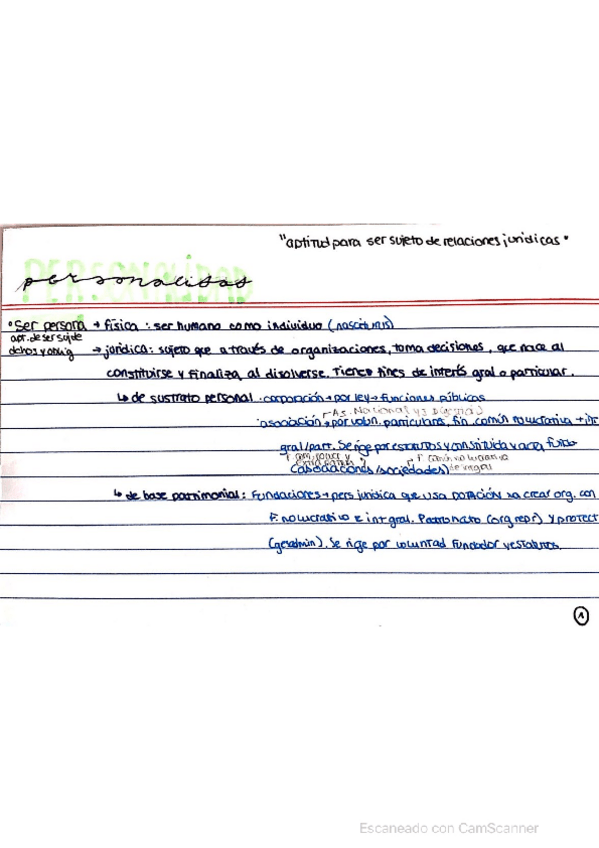 "aptitud para ser sujeto de relaciones jurídicas"
PERSONALIDAD
personalidad
• Ser persona → física : ser humano como individuo (nasciturus)
apt. de ser suj de
dchos y oblig → jurídica : sujeto que a través de organizaciones, toma decisiones, que nace al
constituirse y finaliza al disolverse. Tienes fines de interés gral o particular.
↳ de sustrato personal · corporación → por ley → funciones públicas
· asociación → por volun. particulares, fin común no lucrativo → int
gral/part. Se rige por estatutos y constituida x acta
(asociaciones/sociedades)
↳ de base patrimonial : Fundaciones → pers jurídica que usa dotación xa crear org. con
F. no lucrativo e int gral. Patronato (org repr) y protect
(ger admin). Se rige por voluntad fundador y estatutos.
1
Escaneado con CamScanner